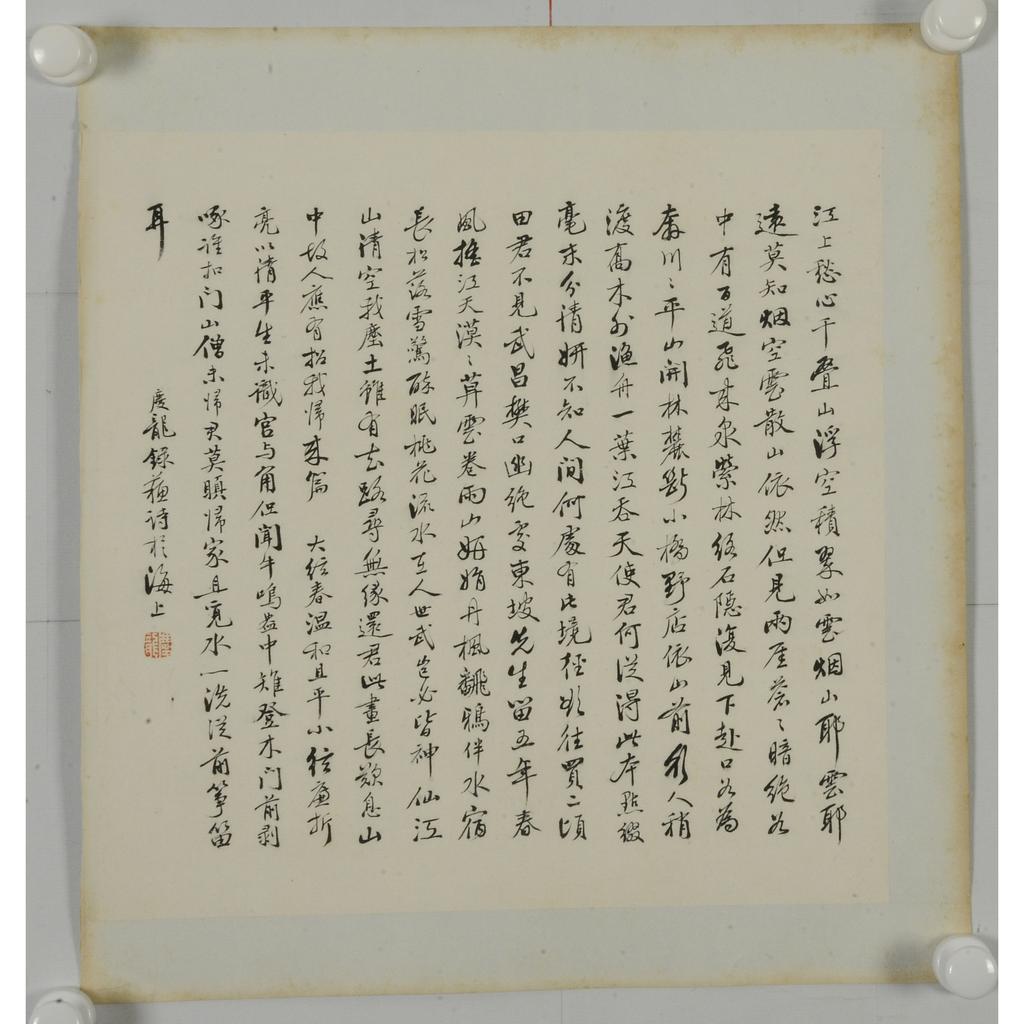 江上愁心千叠山浮空積翠如雲烟山耶雲耶
遠莫知烟空雲散山依然但見兩厓蒼〻暗絶谷
中有百道飛來泉縈林絡石隠復見下赴谷口為
奔川〻平山開林麓斷小橋野店依山前行人稍
渡喬木外漁舟一葉江吞天使君何從得此本點綴
毫末分清妍不知人间何處有此境徑欲往買二頃
田君不見武昌樊口幽絶處東坡先生留五年春
風摇江天漠〻莫雲卷雨山娟娟丹楓飜鴉伴水宿
長松落雪驚醉眠桃花流水在人世武豈必皆神仙江
山清空我塵土雖有去路尋無緣還君此畫長歎息山
中故人應有招我歸來篇　大絃春温和且平小絃廉折
亮以清平生未識宫与角但聞牛鳴盎中雉登木门前剥
啄誰扣门山僧未歸君莫瞋歸家且覓水一洗從前筝笛
耳
慶龍錄蘇詩於海上